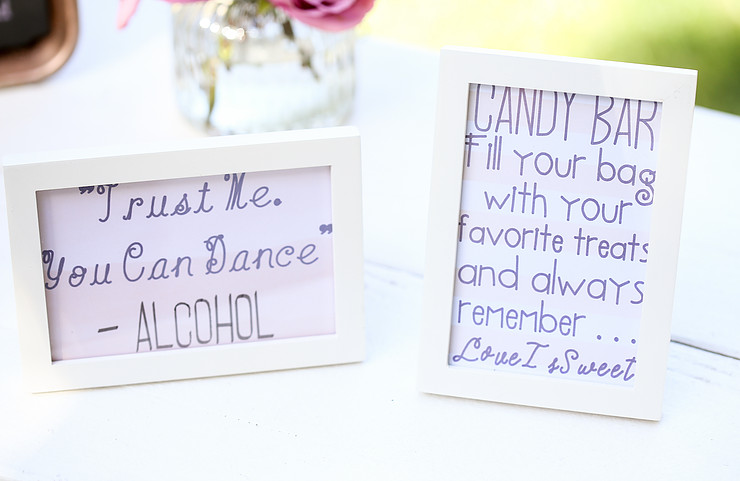 "Trust Me.
You Can Dance"
- ALCOHOL
CANDY BAR
Fill your bag
with your
favorite treats
and always
remember ...
Love I sSweet